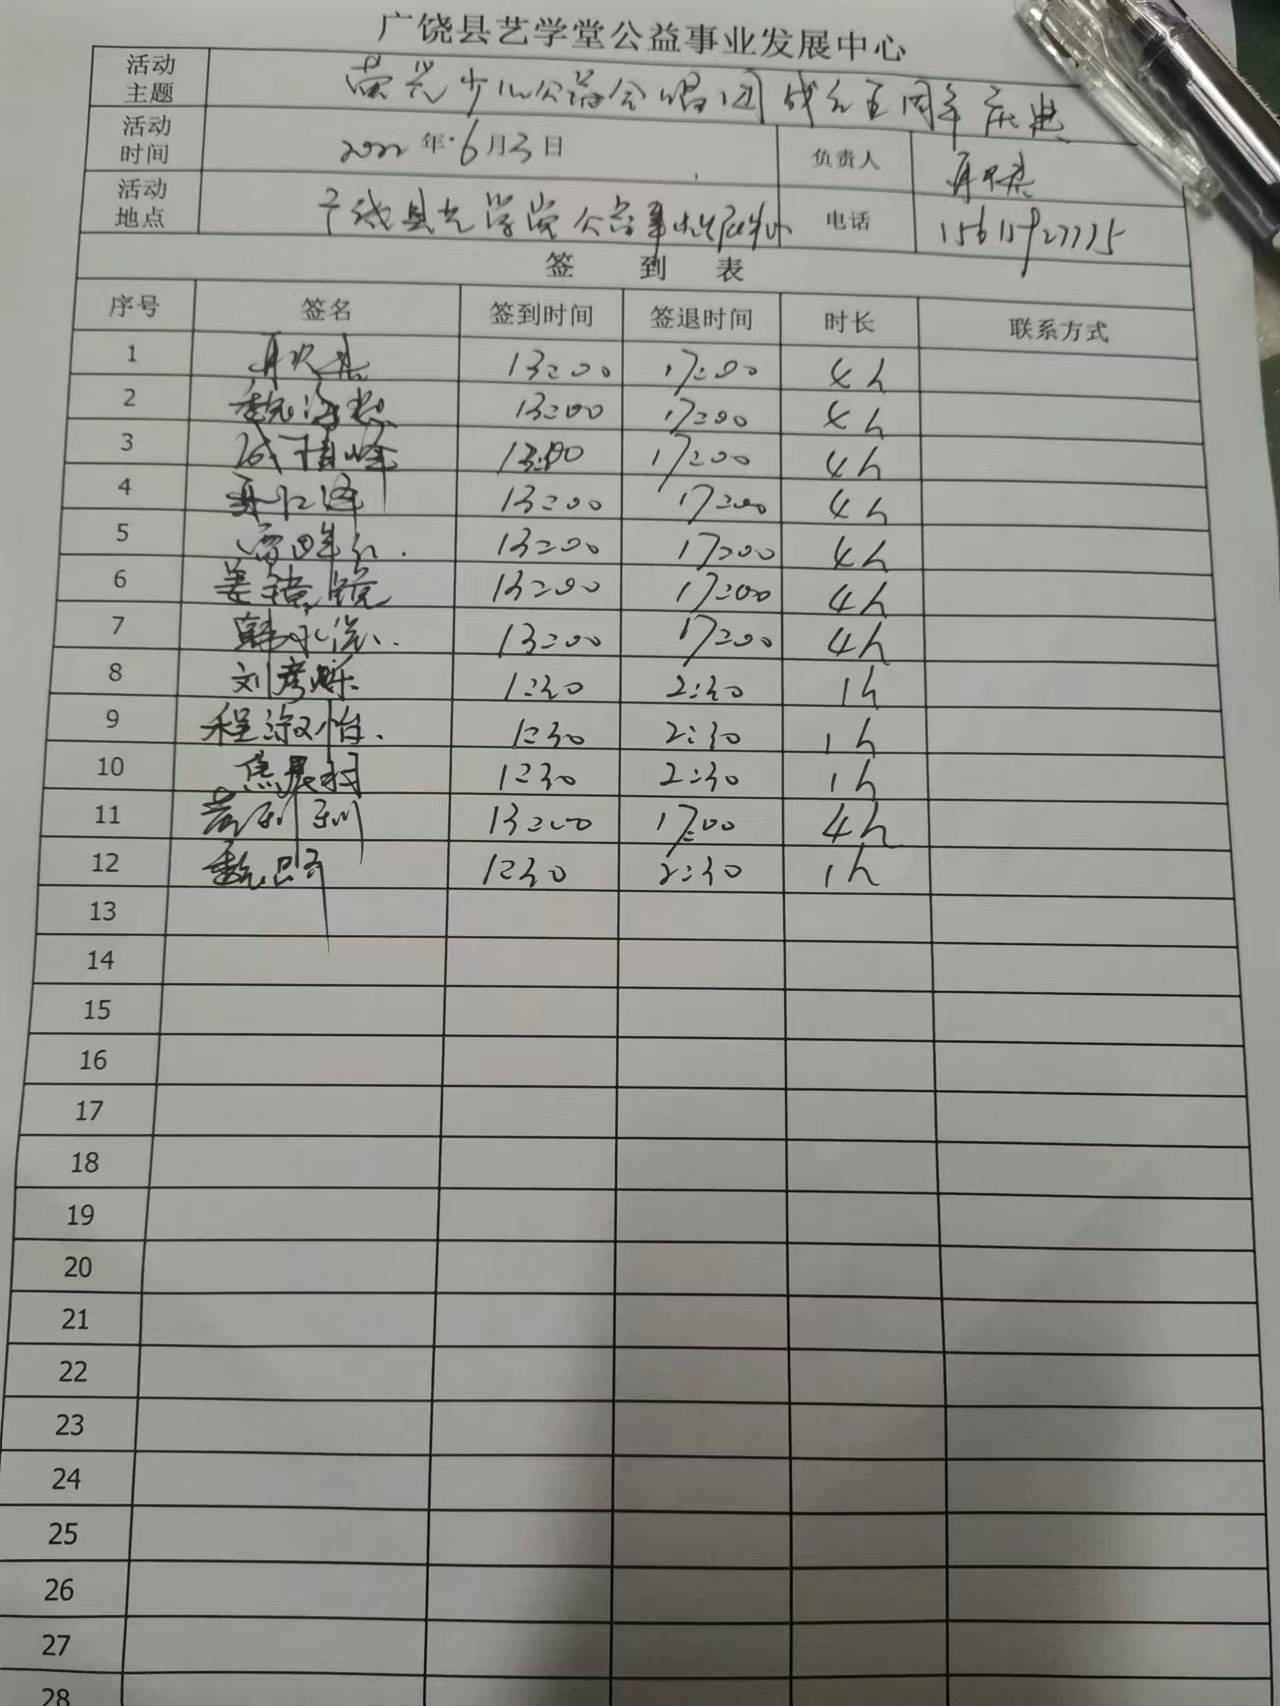 广饶县艺学堂公益事业发展中心
活动主题 荣兴少儿公益合唱团成立五周年庆典
活动时间 2022年·6月3日 负责人
活动地点 广饶县艺学堂公益事业发展中心 电话 15615927775
签 到 表
序号 签名 签到时间 签退时间 时长 联系方式
1 13:00 17:00 4h
2 魏海 13:00 17:00 4h
3 峰 13:00 17:00 4h
4 13:00 17:00 4h
5 13:00 17:00 4h
6 姜 13:00 17:00 4h
7 韩永 13:00 17:00 4h
8 刘彦 1:30 2:30 1h
9 程淑怡. 1:30 2:30 1h
10 焦 1:30 2:30 1h
11 13:00 17:00 4h
12 魏 1:30 2:30 1h
13
14
15
16
17
18
19
20
21
22
23
24
25
26
27
28